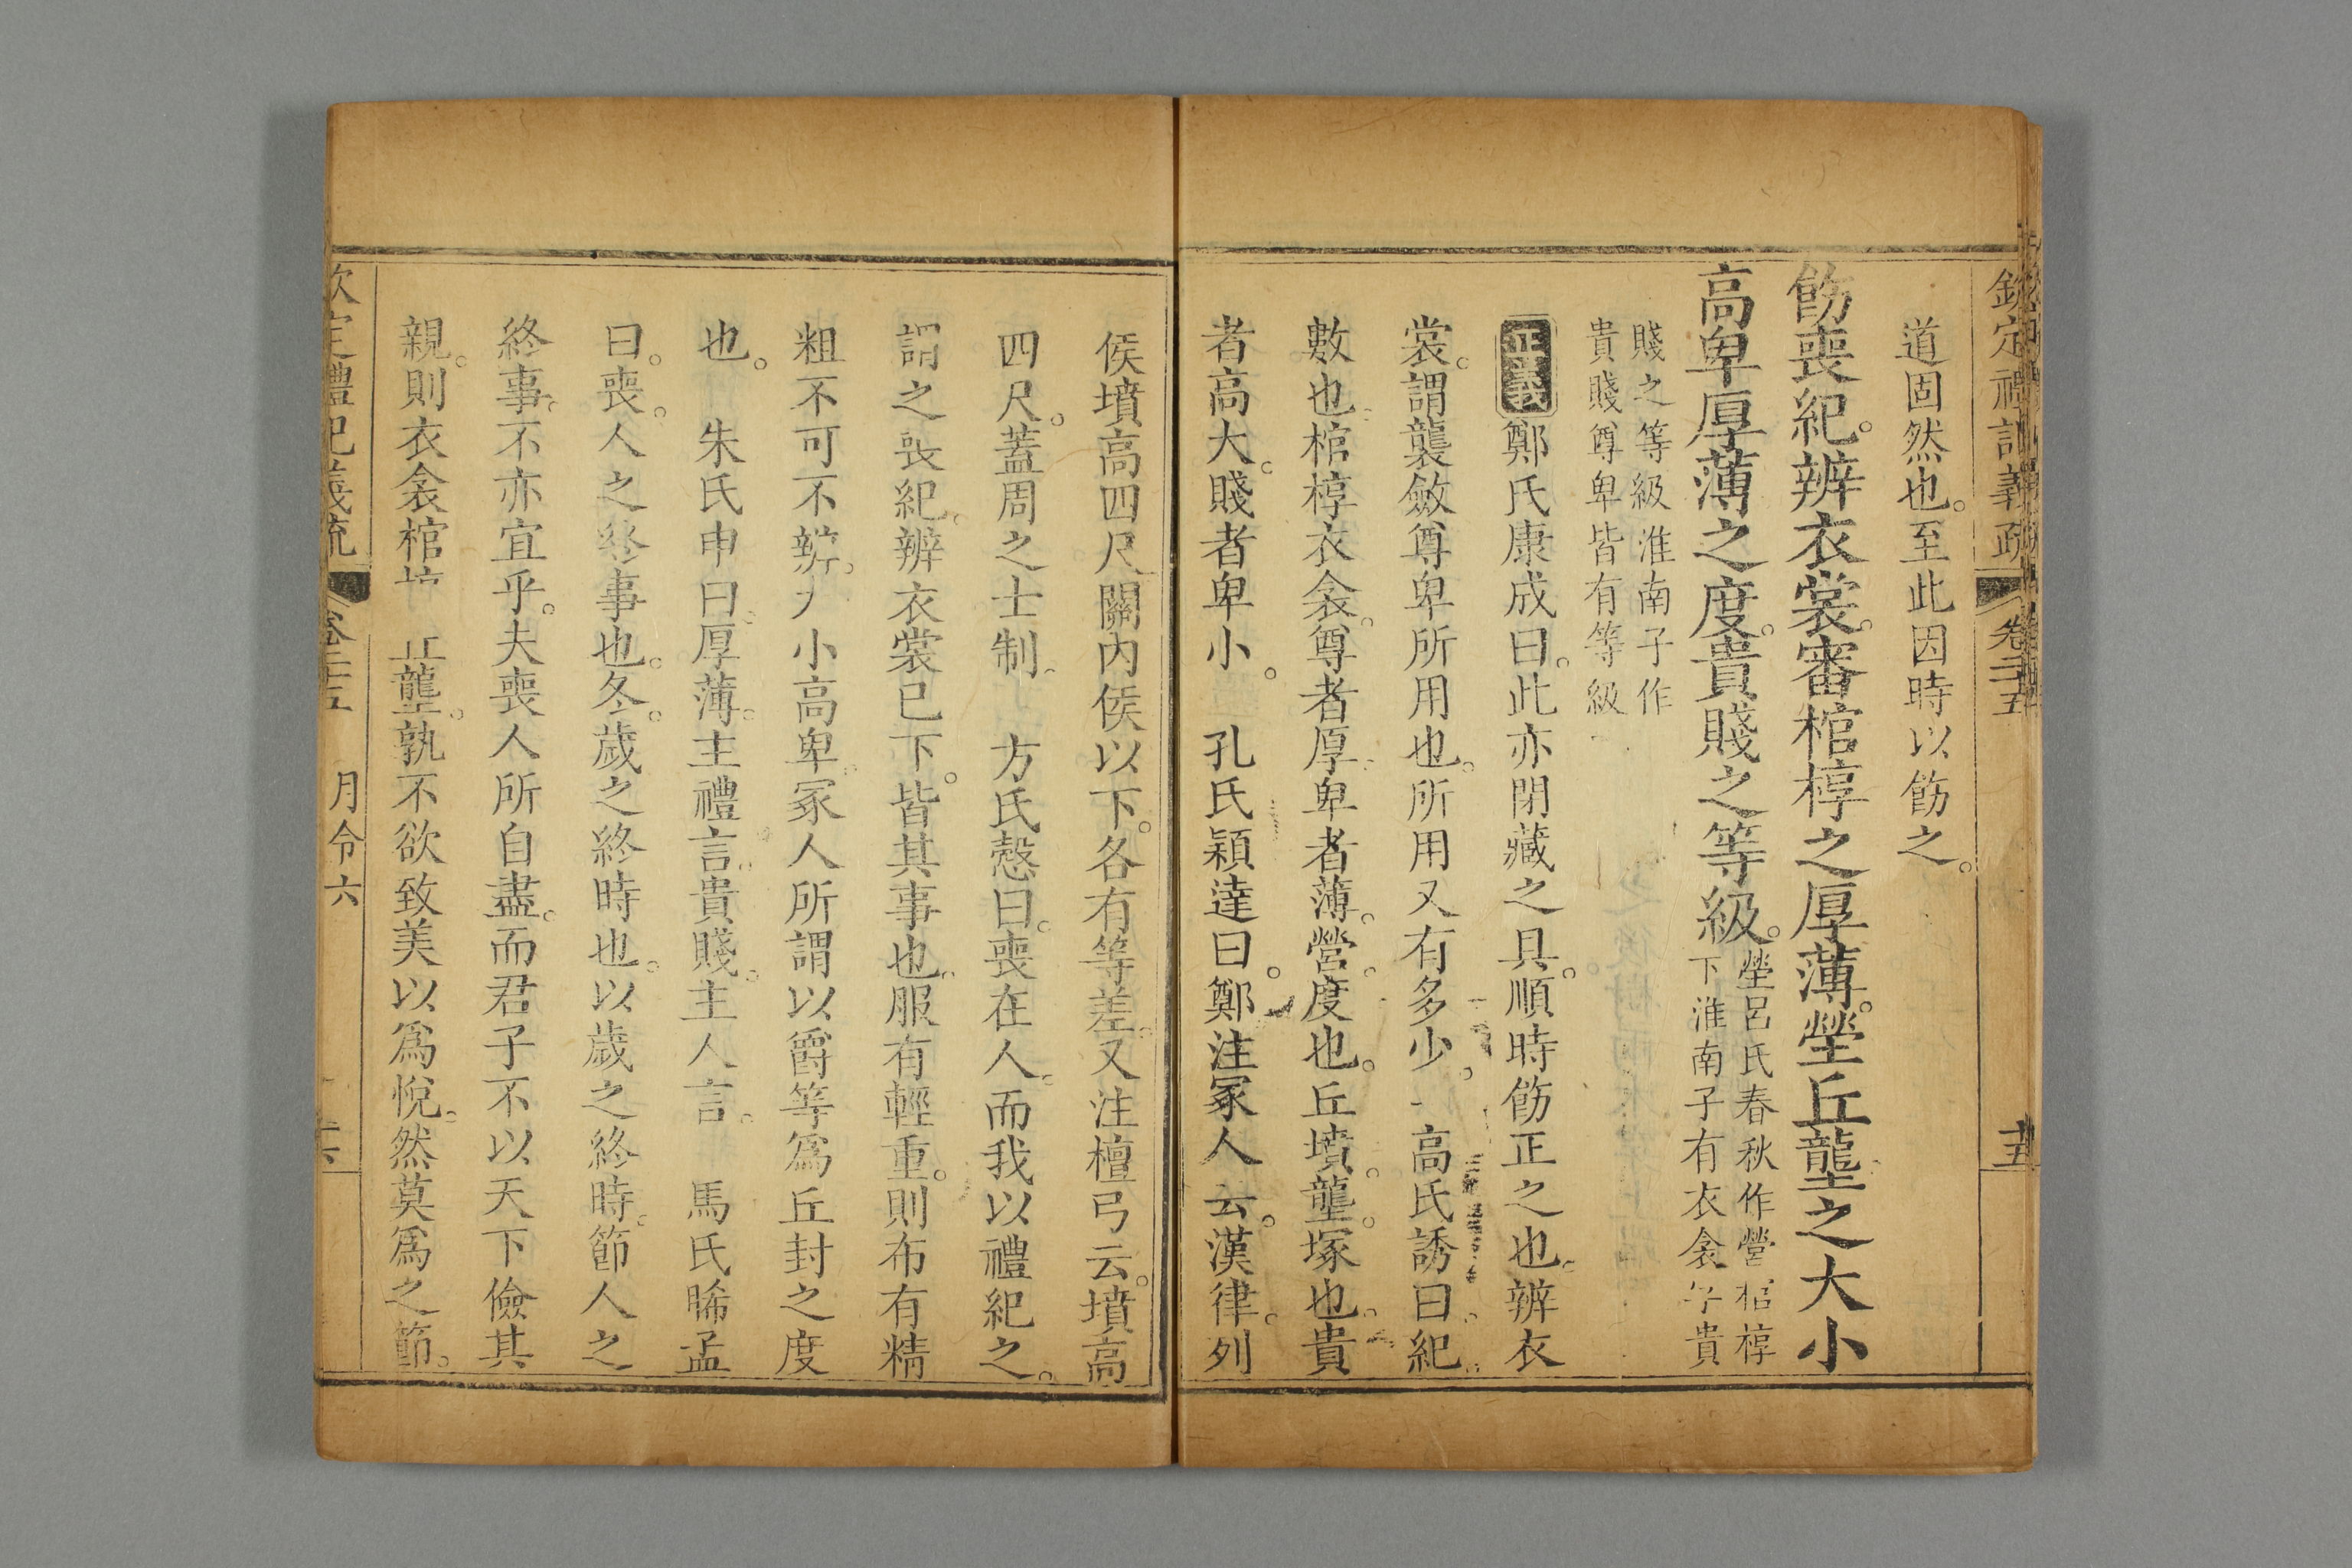 欽定禮記義疏 卷二十五 十五
道固然也。至此因時以飭之。
飭喪紀。辨衣裳。審棺椁之厚薄。塋丘壟之大小
高卑厚薄之度。貴賤之等級。
塋呂氏春秋作營棺椁
下淮南子有衣衾字貴
賤之等級淮南子作
貴賤尊卑皆有等級
正義鄭氏康成曰。此亦閉藏之具。順時飭正之也。辨衣
裳。謂襲斂尊卑所用也。所用又有多少。 高氏誘曰。紀。
數也。棺椁衣衾。尊者厚。卑者薄。營。度也。丘墳。壟。塚也。貴
者高大。賤者卑小。 孔氏穎達曰。鄭注冢人云。漢律。列
侯墳高四尺關內侯以下。各有等差。又注檀弓云。墳高
四尺。蓋周之士制。 方氏慤曰。喪在人。而我以禮紀之。
謂之喪紀。辨衣裳已下。皆其事也。服有輕重。則布有精
粗不可不辨。大小高卑。冢人所謂以爵等爲丘封之度
也。 朱氏申曰。厚薄。主禮言。貴賤。主人言。 馬氏晞孟
曰。喪。人之終事也。冬。歲之終時也。以歲之終時。節人之
終事。不亦宜乎。夫喪人所自盡。而君子不以天下儉其
親。則衣衾棺椁丘壟。孰不欲致美以爲悅。然莫爲之節。
欽定禮記義疏 卷二十五 月令六 十六